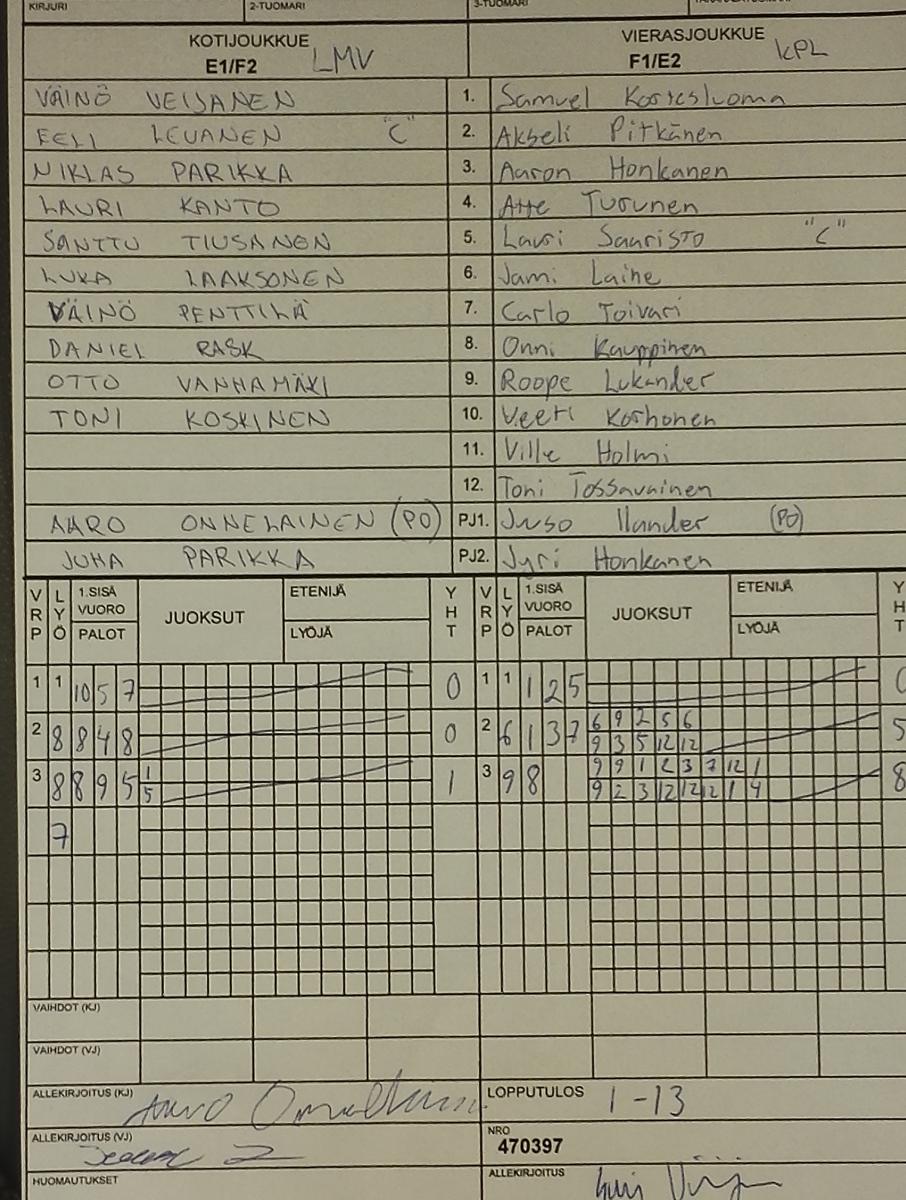 KIRJURI 2-TUOMARI 3-TUOMARI
KOTIJOUKKUE LMV VIERASJOUKKUE KPL
E1/F2 F1/E2
VÄINÖ VEIJANEN 1. Samuel
EELI LEVANEN "C" 2. Akseli Pitkänen
NIKLAS PARIKKA 3. Aaron Honkanen
LAURI KANTO 4. Atte Turunen
SANTTU TIUSANEN 5. Lauri Sauristo "C"
LUKA LAAKSONEN 6. Jami Laine
VÄINÖ PENTTILÄ 7. Carlo Toivari
DANIEL RASK 8. Onni Kauppinen
OTTO VANHAMÄKI 9. Roope Lukander
TONI KOSKINEN 10. Veeti Korhonen
11. Ville Holmi
12. Toni Tossavainen
AARO ONNELAINEN (PO) PJ1. Juuso Ilander (PO)
JUHA PARIKKA PJ2. Jyri Honkanen
VRP LYÖ 1.SISÄ VUORO PALOT JUOKSUT ETENIJÄ LYÖJÄ YHT VRP LYÖ 1.SISÄ VUORO PALOT JUOKSUT ETENIJÄ LYÖJÄ YHT
1 1 10 5 7 0 1 1 1 2 5 0
2 8 8 4 8 0 2 6 1 3 7 6 9 2 5 6 5
9 3 5 12 12
3 8 8 9 5 1 1 3 9 8 9 9 1 2 3 7 12 1 8
5 9 2 3 12 12 12 1 4
7
VAIHDOT (KJ)
VAIHDOT (VJ)
ALLEKIRJOITUS (KJ) LOPPUTULOS 1-13
ALLEKIRJOITUS (VJ) NRO
470397
HUOMAUTUKSET ALLEKIRJOITUS